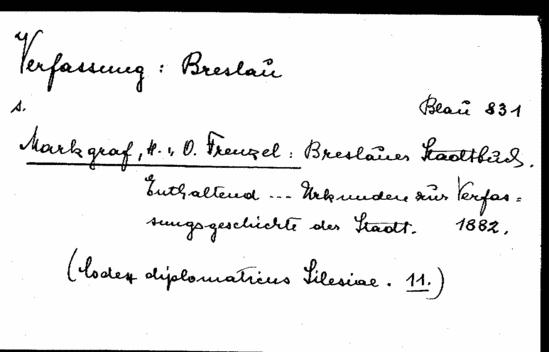 Verfassung : Breslau
s.
Blau 831
Markgraf, H. u. O. Frenzel : Breslauer Stadtbuch.
Enthaltend ... Urkunden zur Verfas=
sungsgeschichte der Stadt. 1882.
(Codex diplomaticus Silesiae. 11.)